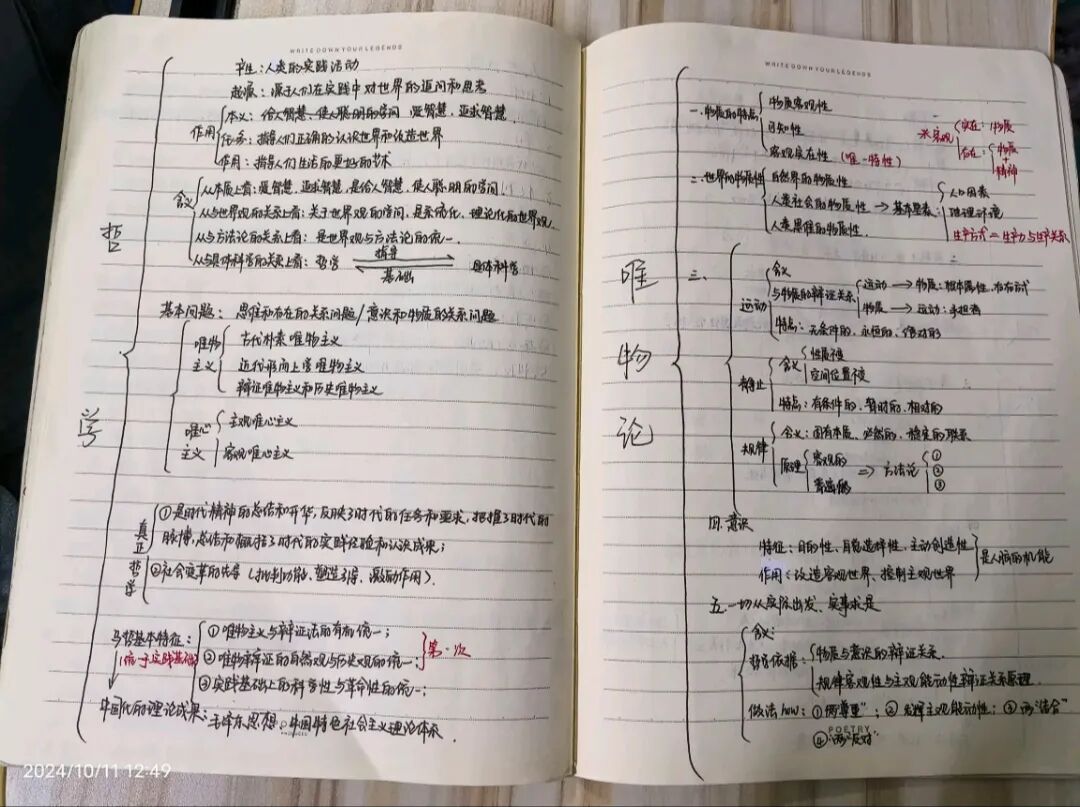 WRITE DOWN YOUR LEGENDS
产生：人类的实践活动
起源：源于人们在实践中对世界的追问和思考
作用
本义：给人智慧、使人聪明的学问 爱智慧，追求智慧
任务：指导人们正确的认识世界和改造世界
作用：指导人们生活的更好的艺术
含义
从本质上看：爱智慧，追求智慧，是给人智慧，使人聪明的学问
从与世界观的关系上看：关于世界观的学问，是系统化、理论化的世界观
从与方法论的关系上看：是世界观与方法论的统一．
从与具体科学的关系上看：哲学 指导 基础 具体科学
哲学
基本问题：思维和存在的关系问题/意识和物质的关系问题
唯物主义
古代朴素唯物主义
近代形而上学唯物主义
辩证唯物主义和历史唯物主义
唯心主义
主观唯心主义
客观唯心主义
真正哲学
①是时代精神的总结和升华，反映了时代的任务和要求，把握了时代的
脉搏，总结和概括了时代的实践经验和认识成果；
②社会变革的先导（批判功能、塑造引导、激励作用）．
马哲基本特征：
①唯物主义与辩证法的有机统一；
②唯物辩证的自然观与历史观的统一；
③实践基础上的科学性与革命性的统一；
第一次
统一于实践基础
中国化的理论成果：毛泽东思想、中国特色社会主义理论体系．
2024/10/11 12:49
WRITE DOWN YOUR LEGENDS
唯物论
一．物质的特点
物质客观性
可知性
客观实在性（唯一特性）
※客观
实在：物质
存在：物质+精神
二．世界的物质性
自然界的物质性
人类社会的物质性→基本要素
人口因素
地理环境
生产方式＝生产力与生产关系
人类思维的物质性．
三．
运动
含义
与物质的辩证关系
运动→物质：根本属性、存在方式
物质→运动：承担者
特点：无条件的、永恒的、绝对的
静止
含义
性质不变
空间位置不变
特点：有条件的、暂时的、相对的
规律
含义：固有本质、必然的、稳定的联系
原理
客观的
普遍的
⇒方法论
①
②
③
四．意识
特征：目的性、自觉选择性、主动创造性
作用（改造客观世界、控制主观世界
是人脑的机能
五．一切从实际出发、实事求是
含义：
哲学依据：
物质与意识的辩证关系．
规律客观性与主观能动性辩证关系原理．
做法how：①"两尊重"；②发挥主观能动性；③两"结合"
④"两"反对"
POETRY